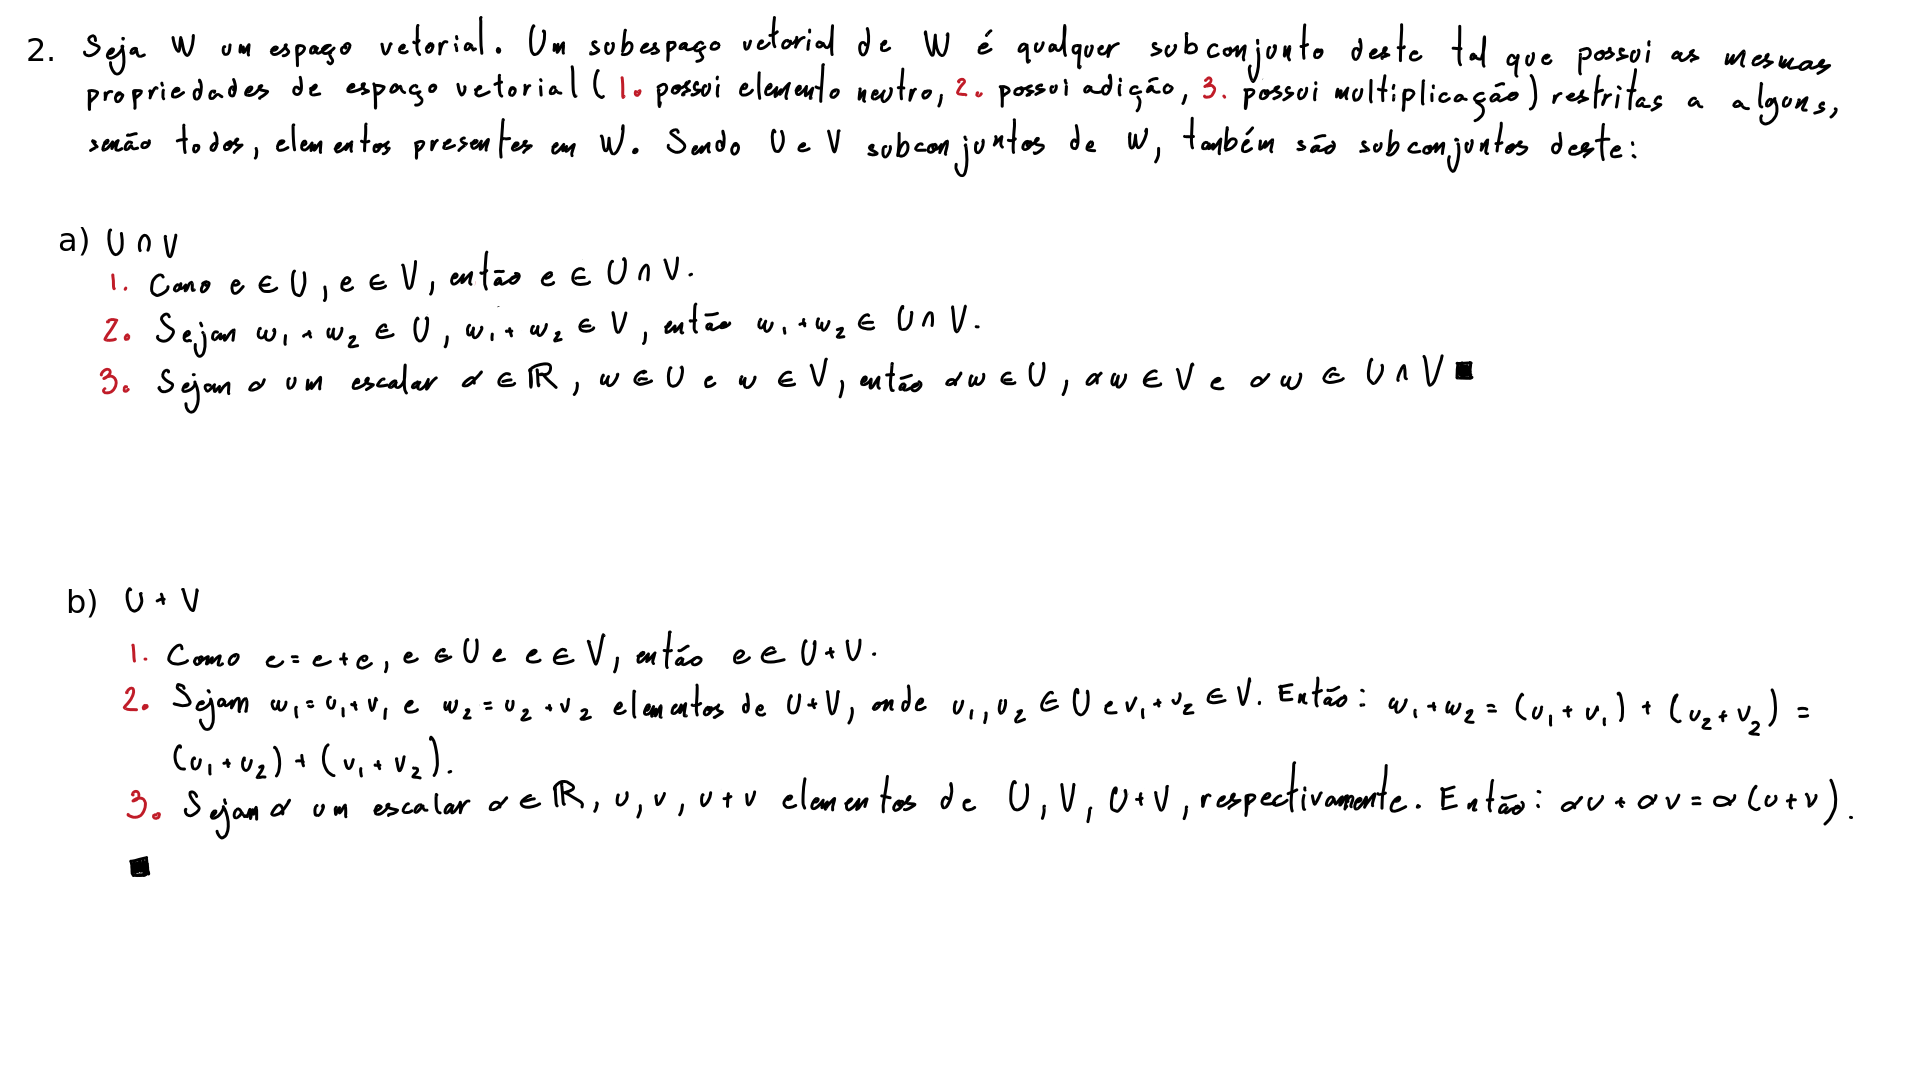 2. Seja W um espaço vetorial. Um subespaço vetorial de W é qualquer subconjunto deste tal que possui as mesmas
propriedades de espaço vetorial (1. possui elemento neutro, 2. possui adição, 3. possui multiplicação) restritas a alguns,
senão todos, elementos presentes em W. Sendo U e V subconjuntos de W, também são subconjuntos deste:
a) U ∩ V
1. Como e ∈ U, e ∈ V, então e ∈ U ∩ V.
2. Sejam w₁ + w₂ ∈ U, w₁ + w₂ ∈ V, então w₁ + w₂ ∈ U ∩ V.
3. Sejam α um escalar α ∈ ℝ, w ∈ U e w ∈ V, então αw ∈ U, αw ∈ V e αw ∈ U ∩ V ■
b) U + V
1. Como e = e + e, e ∈ U e e ∈ V, então e ∈ U + V.
2. Sejam w₁ = u₁ + v₁ e w₂ = u₂ + v₂ elementos de U + V, onde u₁, u₂ ∈ U e v₁ + v₂ ∈ V. Então: w₁ + w₂ = (u₁ + v₁) + (u₂ + v₂) =
(u₁ + u₂) + (v₁ + v₂).
3. Sejam α um escalar α ∈ ℝ, u, v, u + v elementos de U, V, U + V, respectivamente. Então: αu + αv = α(u + v).
■